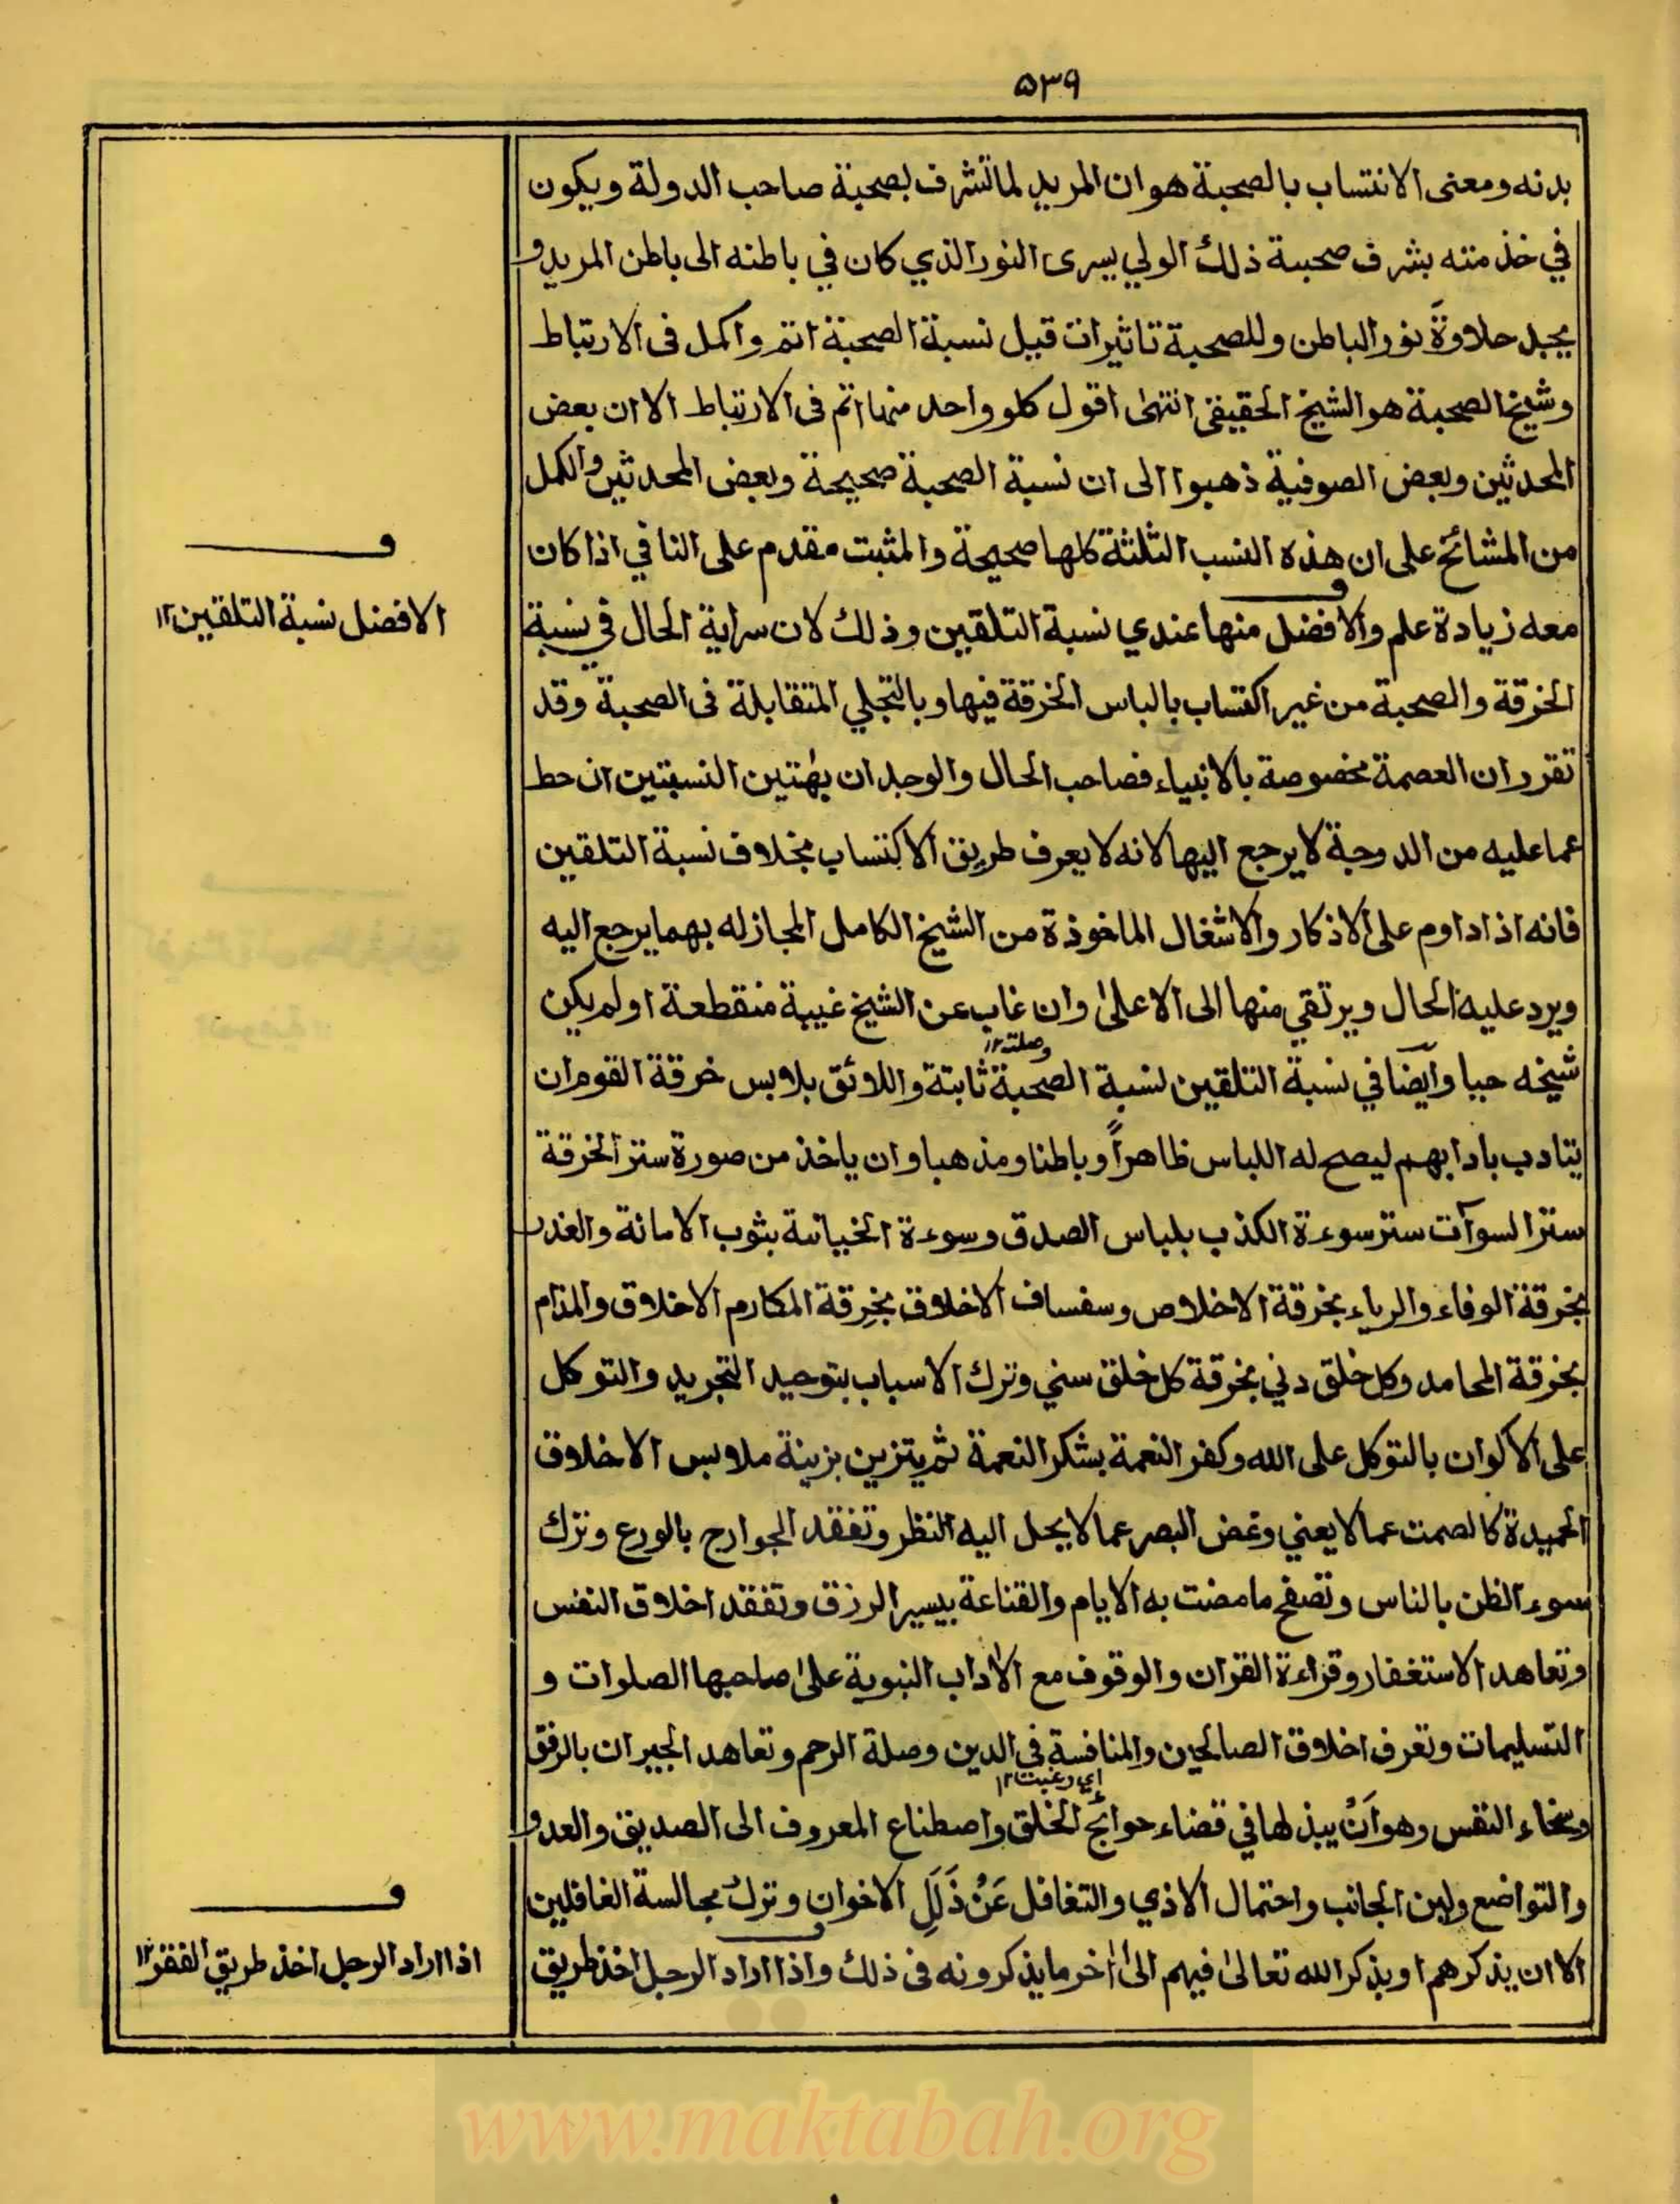 ۵۳۹
بدنه ومعنى الانتساب بالصحبة هوان المريد لما تشرف بصحبة صاحب الدولة ويكون
في خذمته بشرف صحبة ذلك الولي يسرى النور الذي كان في باطنه الى باطن المريد و
يجد حلاوة نور الباطن وللصحبة تاثيرات قيل نسبة الصحبة اتم واكمل فى الارتباط
وشيخ الصحبة هو الشيخ الحقيقى انتهى اقول كلو واحد منها اتم فى الارتباط الا ان بعض
المحدثين وبعض الصوفية ذهبوا الى ان نسبة الصحبة صحيحة وبعض المحدثين والكمل
من المشائخ على ان هذه النسب الثلثة كلها صحيحة والمثبت مقدم على النافي اذا كان
معه زيادة علم والافضل منها عندي نسبة التلقين وذلك لان سراية الحال في نسبة
الخرقة والصحبة من غير اكتساب بالباس الخرقة فيها وبالتجلي المتقابلة فى الصحبة وقد
تقرر ان العصمة مخصوصة بالانبياء فصاحب الحال والوجد ان بهتين النسبتين ان حط
عما عليه من الدرجة لا يرجع اليها لانه لا يعرف طريق الاكتساب بخلاف نسبة التلقين
فانه اذا داوم على الاذكار والاشغال الماخوذة من الشيخ الكامل المجاز له بهما يرجع اليه
ويرد عليه الحال ويرتقي منها الى الاعلى وان غاب عن الشيخ غيبة منقطعة او لم يكن
وصلته ۱۲
شيخه حيا وايضا في نسبة التلقين لنسبة الصحبة ثابتة واللائق بلابس خرقة القوم ان
يتادب بادابهم ليصح له اللباس ظاهراً وباطنا ومذهبا وان ياخذ من صورة ستر الخرقة
ستر السوآت ستر سوءة الكذب بلباس الصدق وسوءة الخيانة بثوب الامانة والغدر
بخرقة الوفاء والرياء بخرقة الاخلاص وسفساف الاخلاق بخرقة المكارم الاخلاق والمذام
بخرقة المحامد وكل خلق دني بخرقة كل خلق سني وترك الاسباب بتوحيد التجريد والتوكل
على الاكوان بالتوكل على الله وكفر النعمة بشكر النعمة ثم يتزين بزينة ملابس الاخلاق
الحميدة كالصمت عما لا يعني وغض البصر عما لا يحل اليه النظر وتفقد الجوارح بالورع وترك
سوء الظن بالناس وتصفح ما مضت به الايام والقناعة بيسير الرزق وتفقد اخلاق النفس
وتعاهد الاستغفار وقراءة القران والوقوف مع الاداب النبوية على صاحبها الصلوات و
التسليمات وتعرف اخلاق الصالحين والمنافسة في الدين وصلة الرحم وتعاهد الجيران بالرفق
اي رغبت ۱۲
وسخاء النفس وهو اَنْ يبذلها في قضاء حوائج الخلق واصطناع المعروف الى الصديق والعدو
والتواضع ولين الجانب واحتمال الاذي والتغافل عَنْ ذَلَلِ الاخوان وترك مجالسة الغافلين
الا ان يذكرهم او يذكر الله تعالى فيهم الى اٰخر ما يذكرونه فى ذلك واذا اراد الرجل اخذ طريق
ف
الافضل نسبة التلقين ۱۲
ف
اذا اراد الرجل اخذ طريق الفقر ۱۲
www.maktabah.org